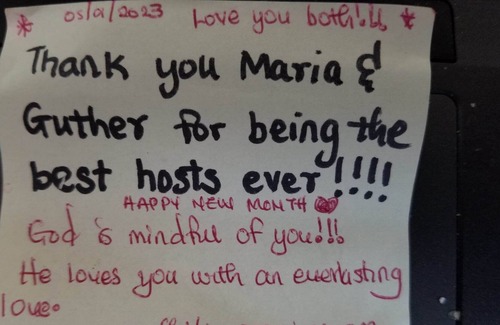 * 05/01/2023 Love you both!!! *
Thank you Maria &
Guther for being the
best hosts ever !!!!
HAPPY NEW MONTH
God is mindful of you!!!
He loves you with an everlasting
love.